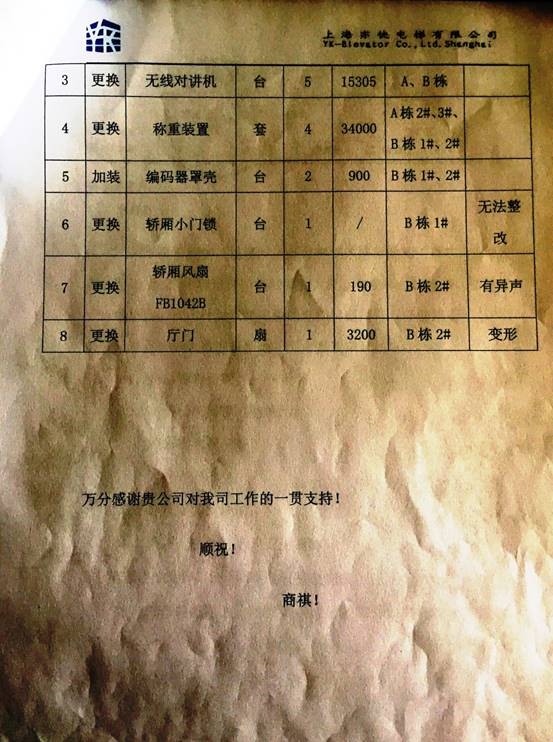 YK
上海 电梯有限公司
YK-Elevator Co.,Ltd.Shanghai
3 更换 无线对讲机 台 5 15305 A、B栋
4 更换 称重装置 套 4 34000 A栋2#、3#、
B栋1#、2#
5 加装 编码器罩壳 台 2 900 B栋1#、2#
6 更换 轿厢小门锁 台 1 / B栋1# 无法整
改
7 更换 轿厢风扇
FB1042B 台 1 190 B栋2# 有异声
8 更换 厅门 扇 1 3200 B栋2# 变形
万分感谢贵公司对我司工作的一贯支持！
顺祝！
商祺！